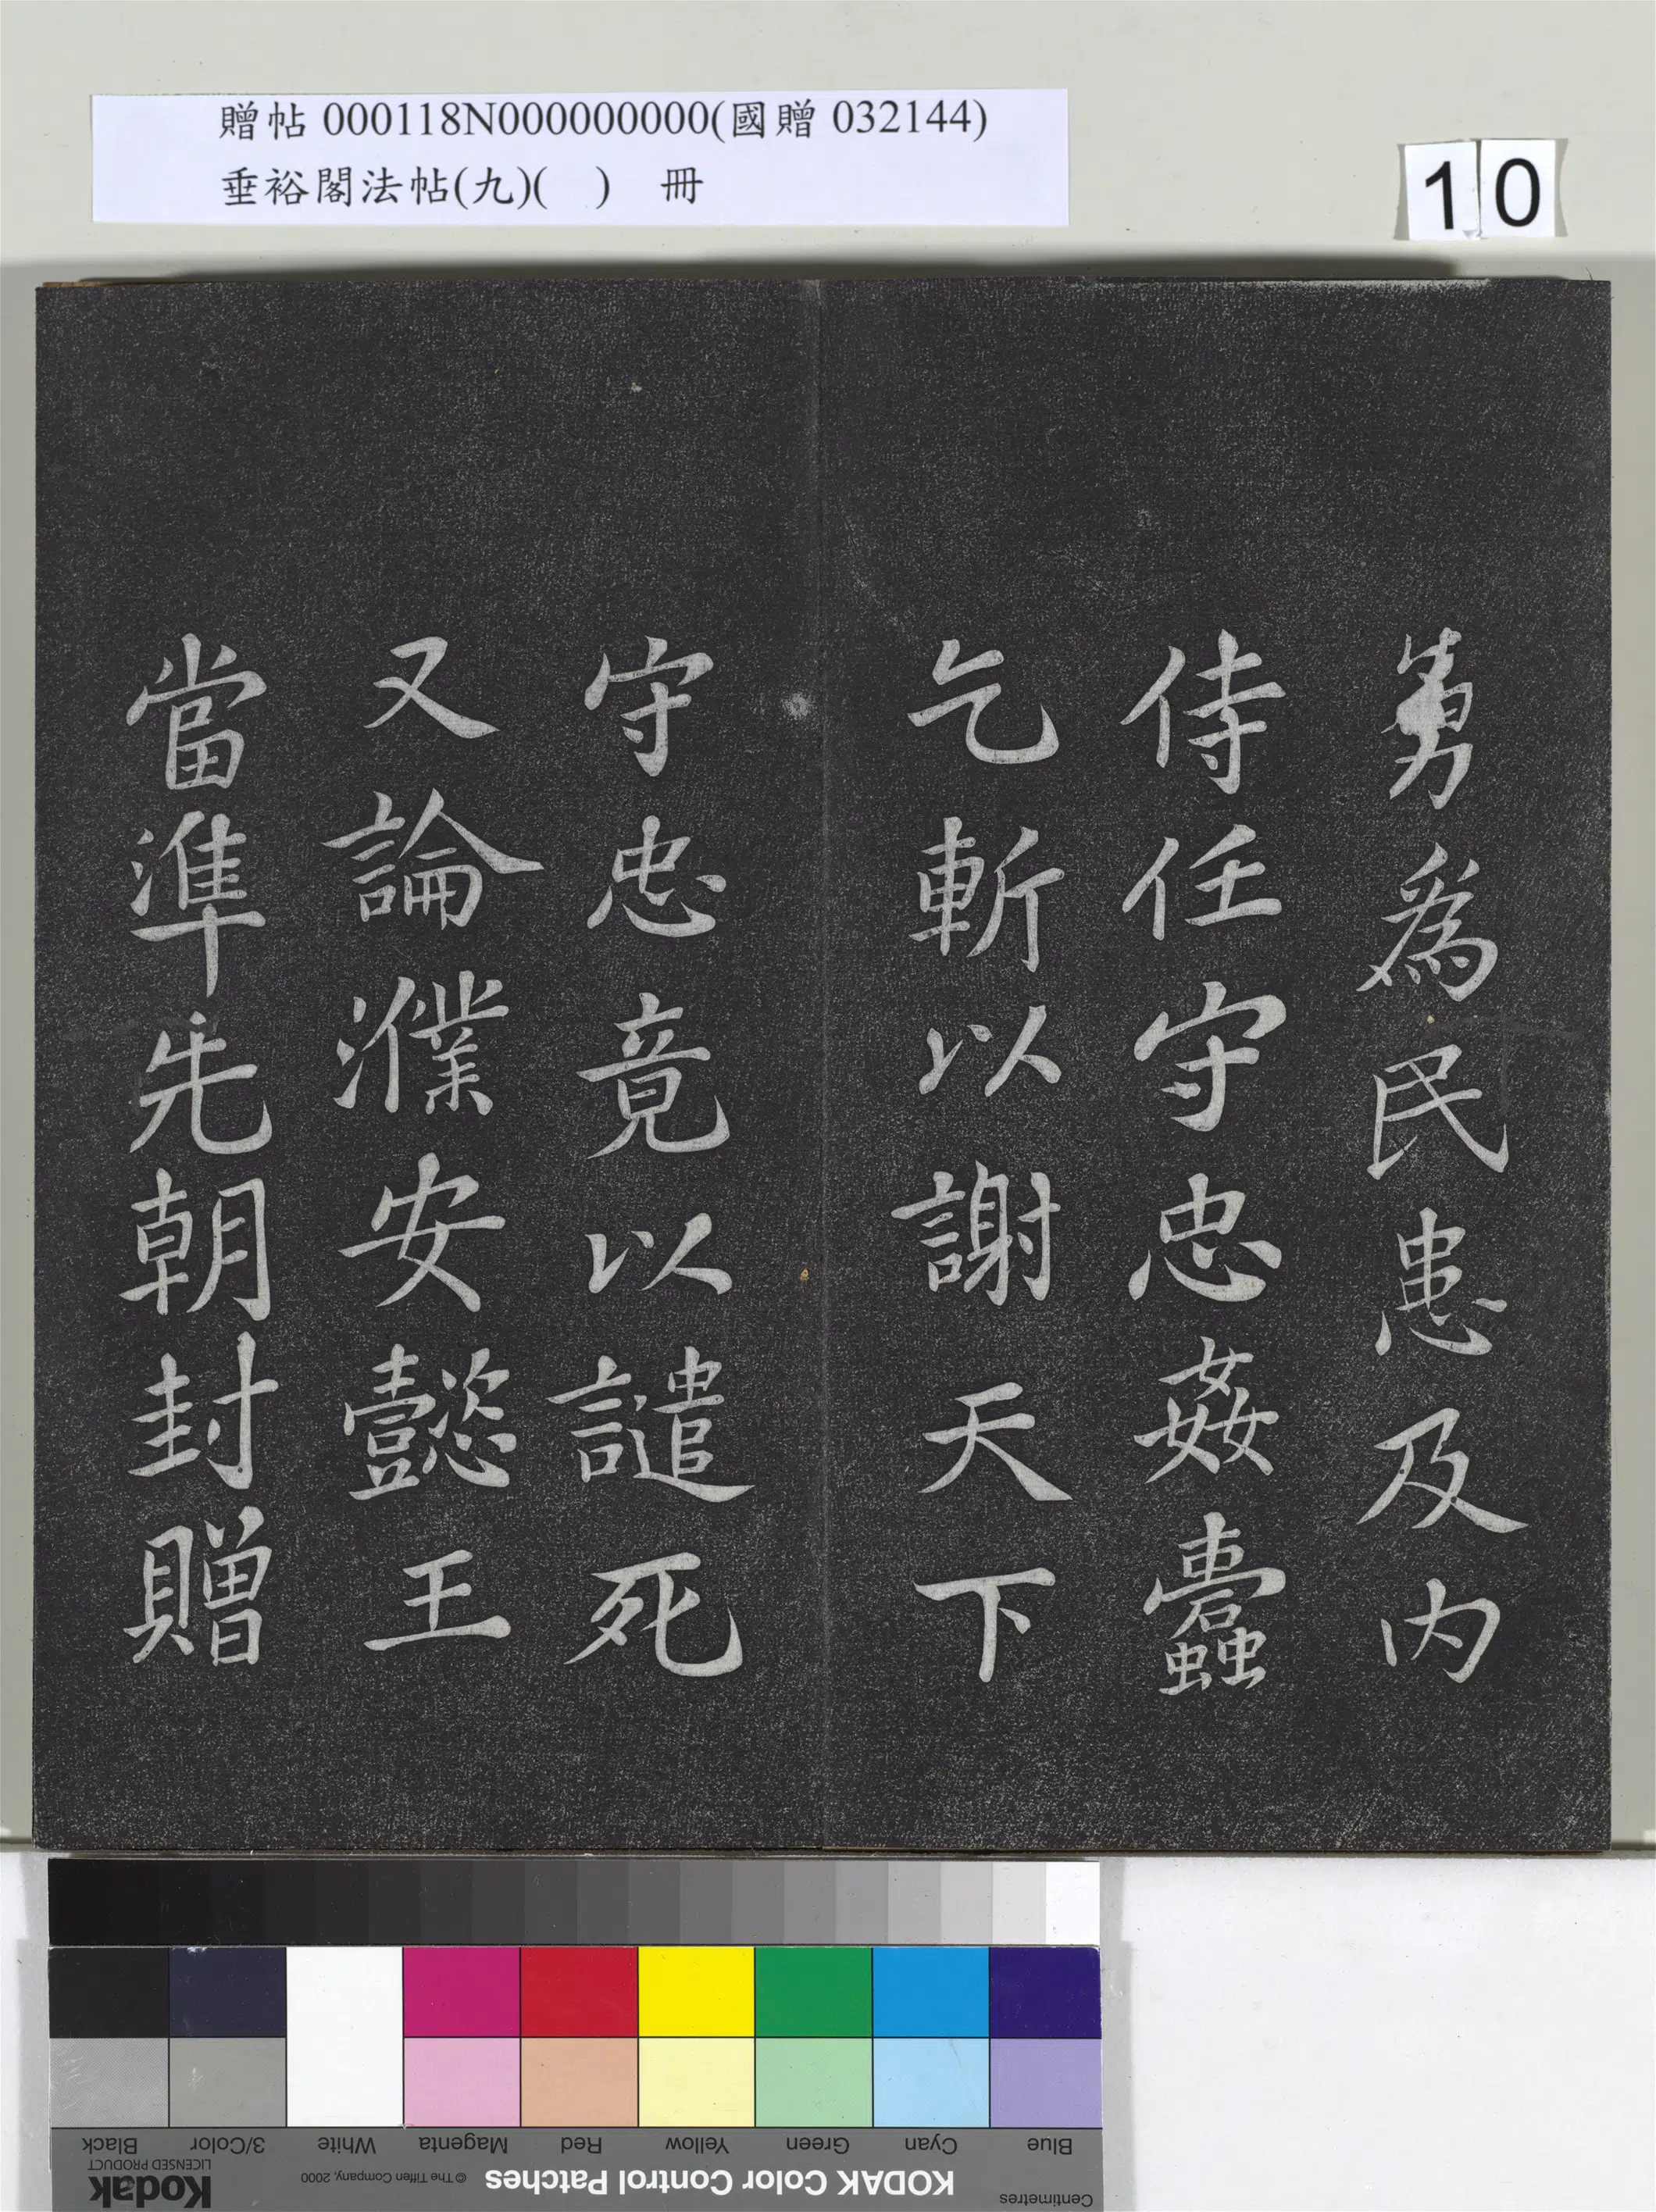 贈帖 000118N000000000(國贈 032144)
垂裕閣法帖(九)(　)　冊
10
勇為民患及内
侍任守忠姦蠹
乞斬以謝天下
守忠竟以譴死
又論濮安懿王
當準先朝封贈
Centimetres
KODAK Color Control Patches
© The Tiffen Company, 2000
Kodak
LICENSED PRODUCT
Blue Cyan Green Yellow Red Magenta White 3/Color Black